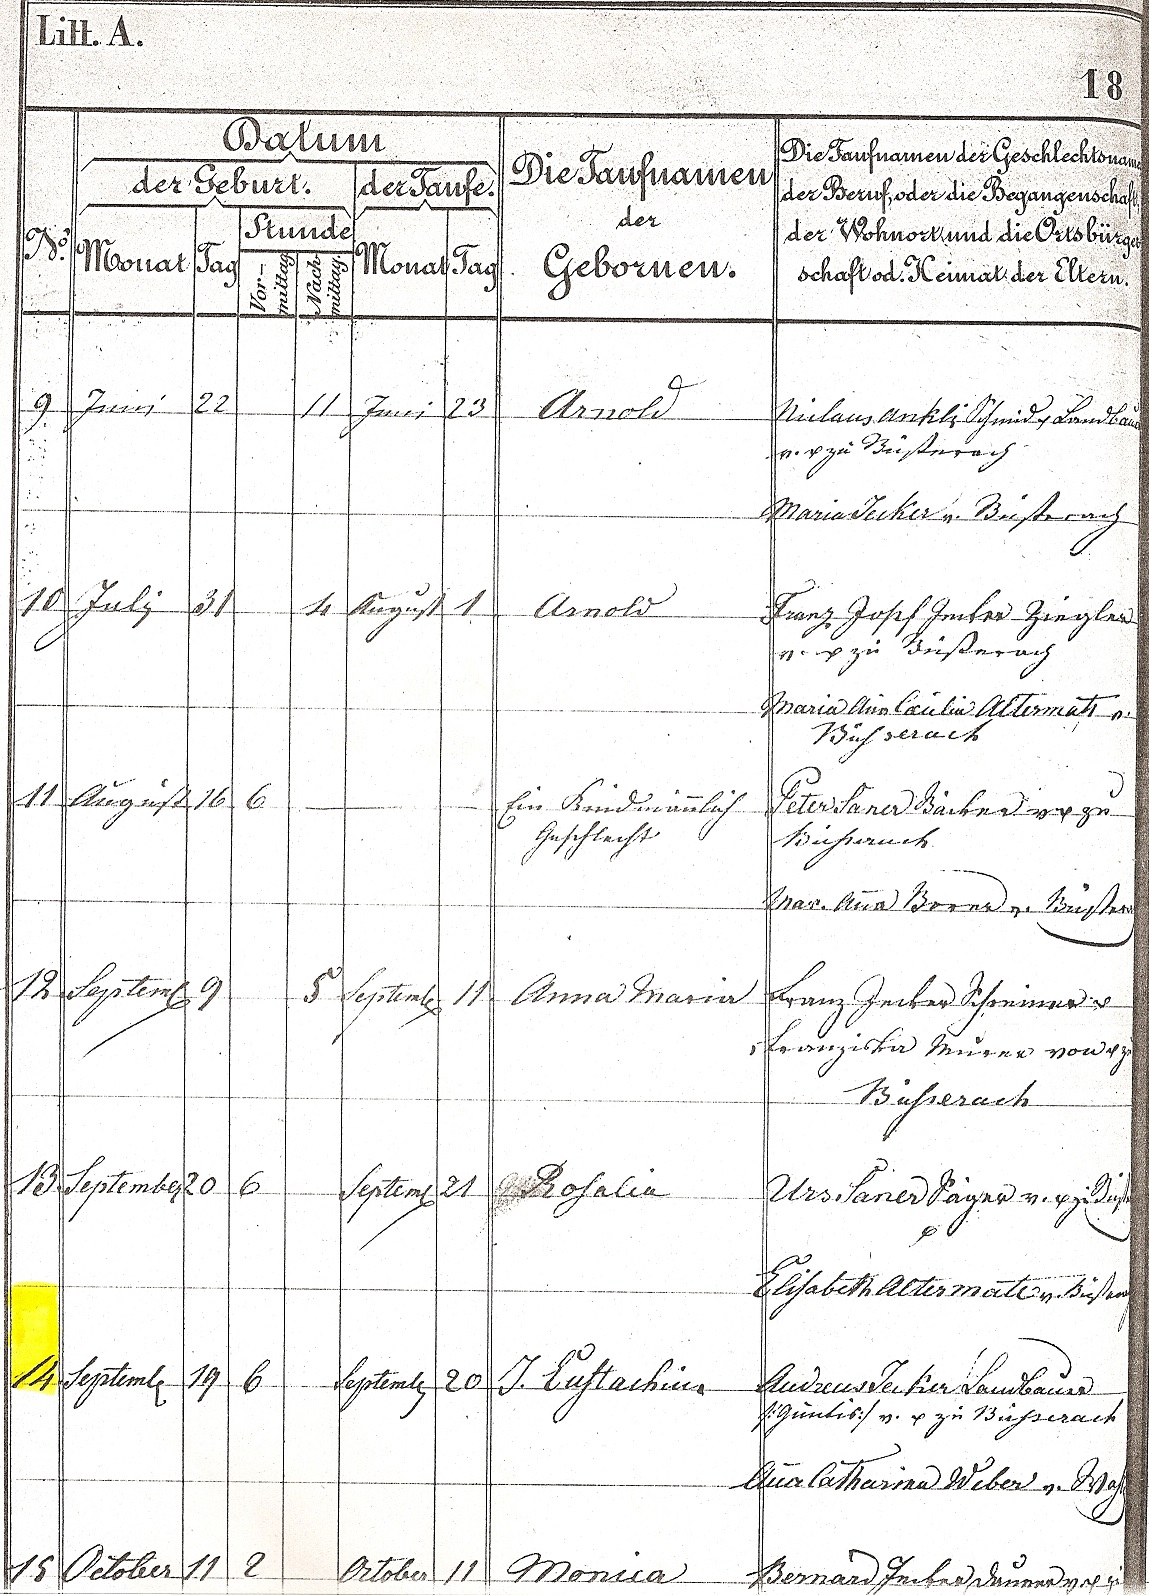 Litt. A.
18
Datum
der Geburt. der Taufe.
Die Taufnamen
der
Gebornen.
Die Taufnamen der Geschlechtsname
der Beruf, oder die Begangenschaft,
der Wohnort und die Ortsbürger
schaft od. Heimat der Eltern.
Stunde
No. Monat Tag Vor-mittag Nach-mittag. Monat Tag
9 Juni 22 11 Juni 23 Arnold Niclaus Ankli Schmid Landbau
v. zu Büßerach
Maria Jecker v. Büßerach
10 July 31 4 August 1 Arnold Franz Josef Jecker Ziegler
v. zu Büßerach
Maria Cäcilia Altermatt v.
Büsserach
11 August 16 6 Ein Kind männlich Peter Saner Bäcker v zu
Geschlecht Büsserach
Mar. Anna Borer v. Büßer
12 Septemb 9 5 Septemb 11 Anna Maria Franz Jecker Schreiner
Franziska von
Büsserach
13 September 20 6 Septemb 21 Rosalia Urs Saner Säger v.
Elisabeth Altermatt v. Büßer
14 Septemb 19 6 Septemb 20 J. Eustachius Andreas Jecker Landbauer
/:Güntis:/ v. zu Büsserach
Anna Catharina Weber v.
15 October 11 2 October 11 Monica Bernard Jecker